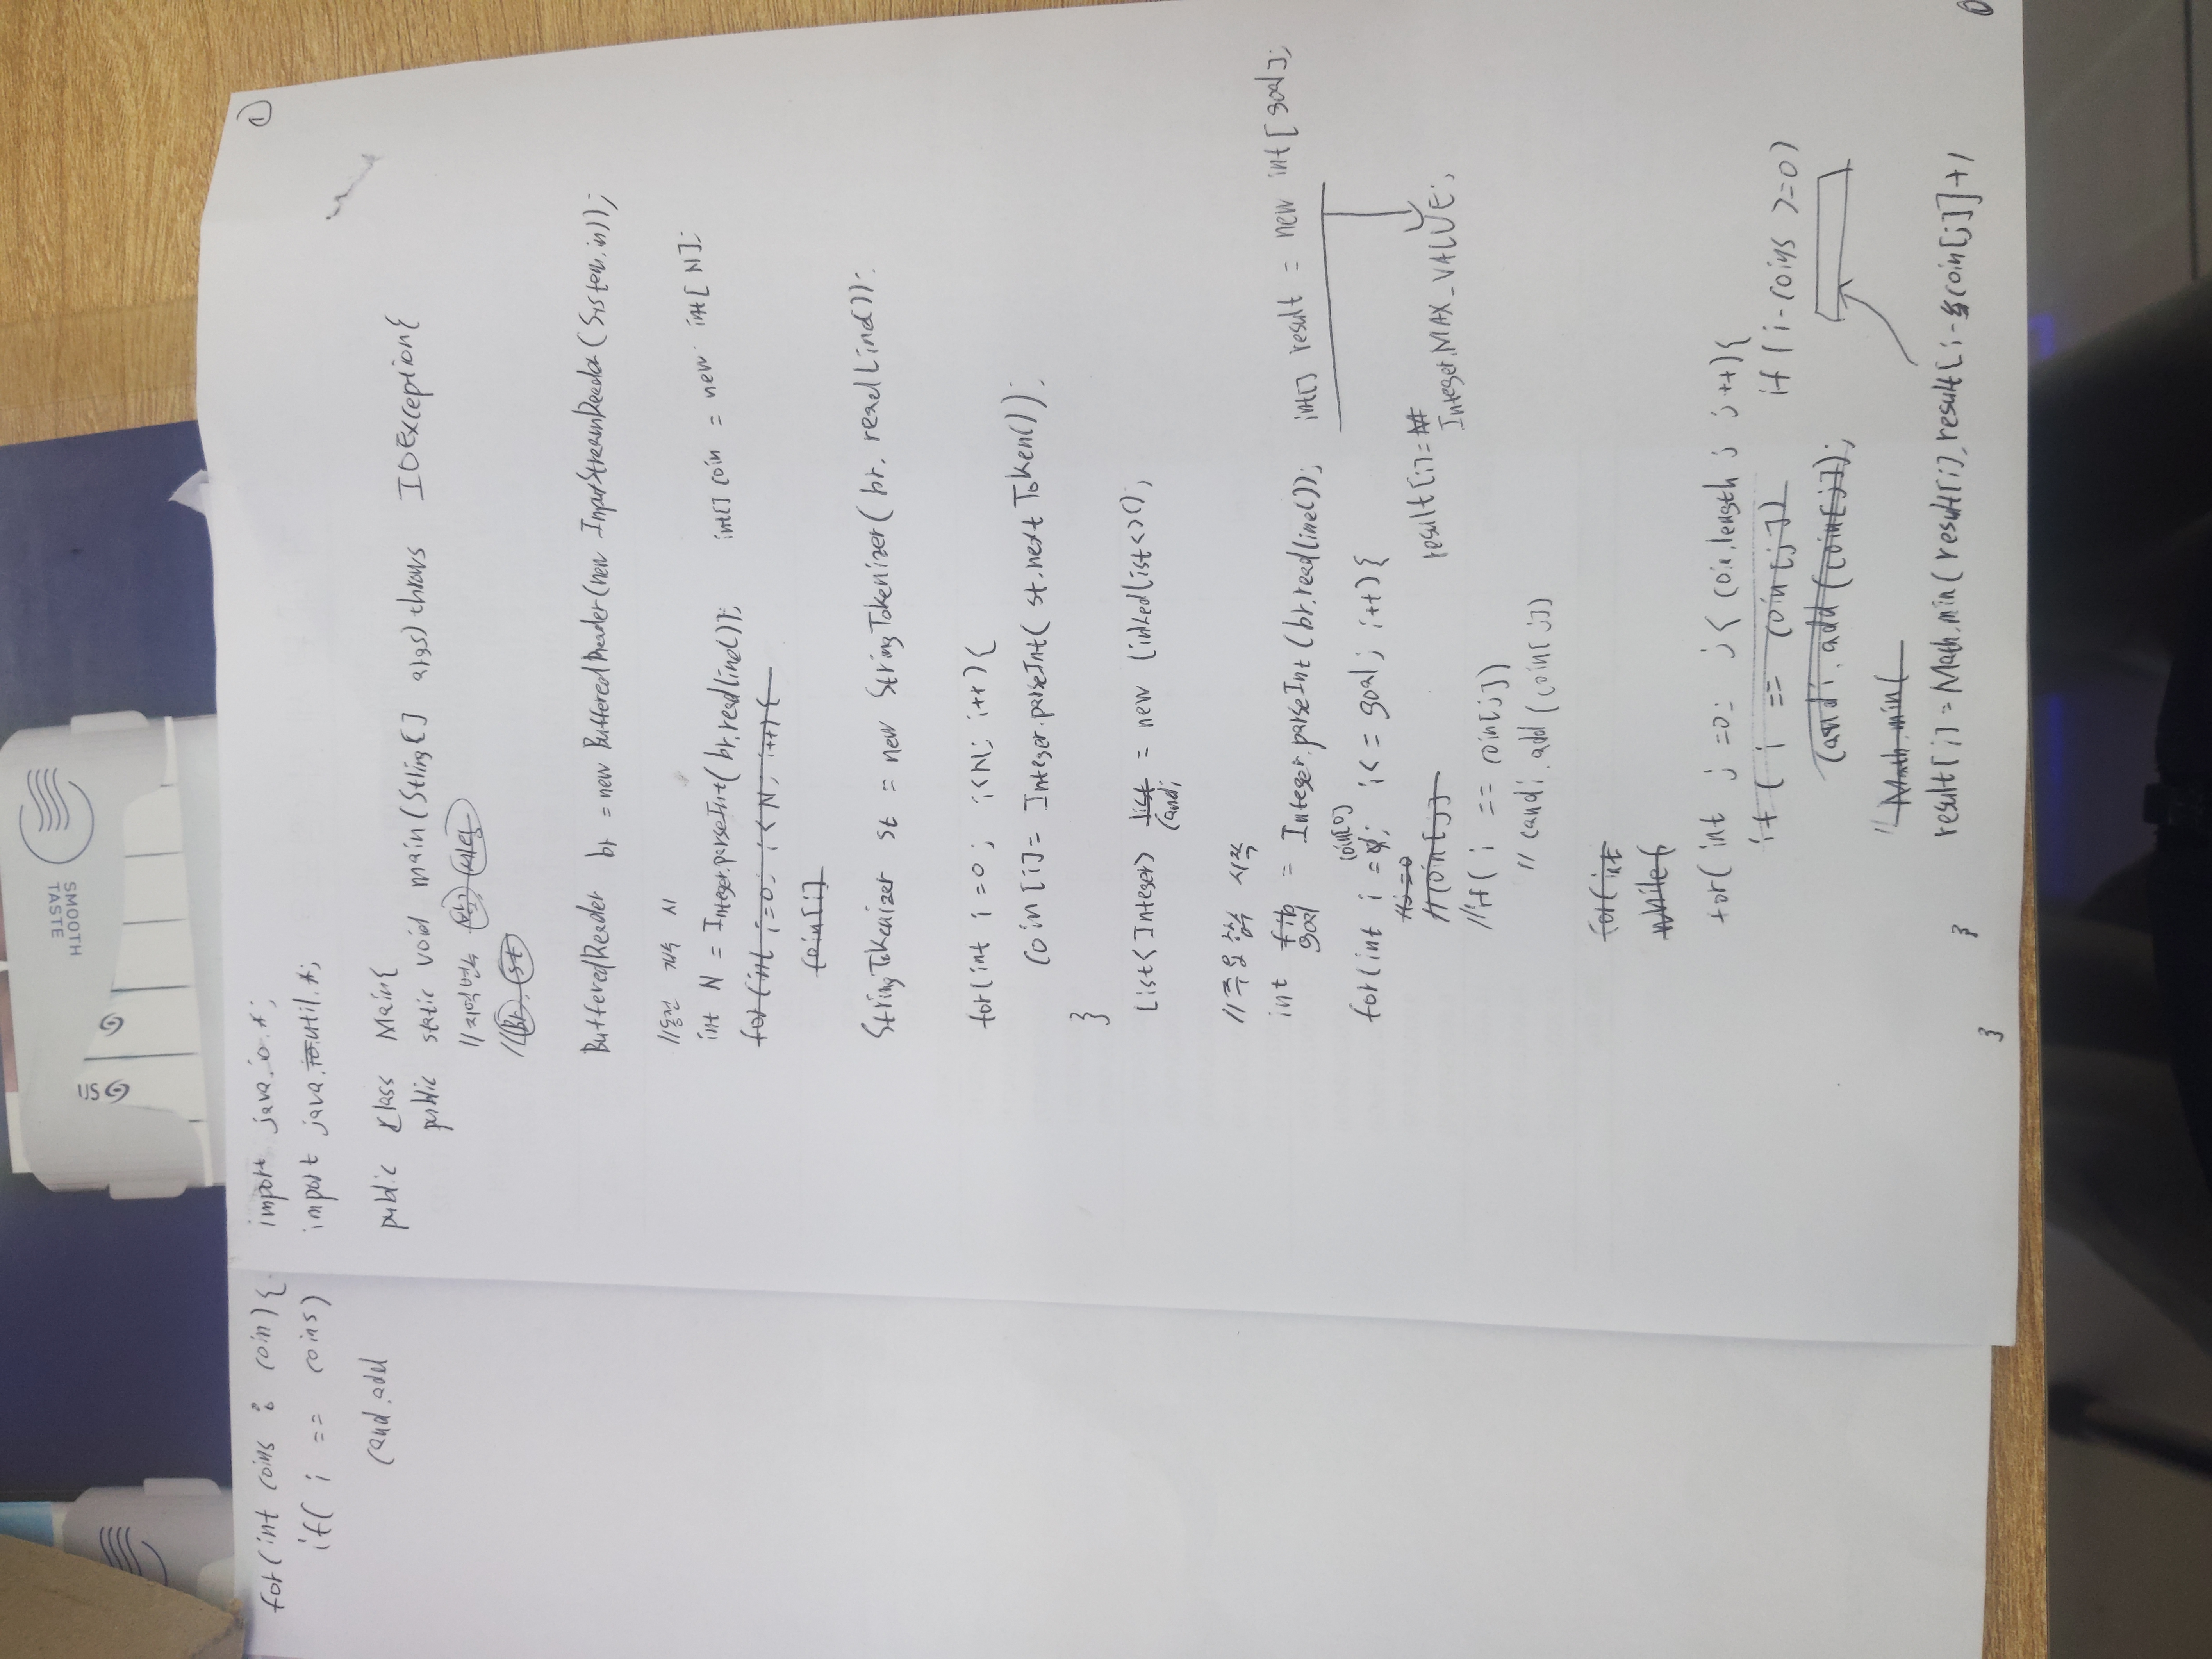 import java.io.*;
import java.util.*;
public class Main{
public static void main(String[] args) throws IOException{
//지역변수
BufferedReader br = new BufferedReader(new InputStreamReader(System.in));
//동전 개수 시
int N = Integer.parseInt(br.readLine()); int[] coin = new int[N];
for(int i=0; i<N; i++){
coin[i]
StringTokenizer st = new StringTokenizer(br.readLine());
for(int i=0; i<N; i++){
coin[i] = Integer.parseInt(st.nextToken());
}
List<Integer> list = new LinkedList<>();
candi
//주요 함수 시작
int goal = Integer.parseInt(br.readLine()); int[] result = new int[goal];
coin[0]
for(int i=0; i<=goal; i++){
result[i]=
Integer.MAX_VALUE;
//i=0
//coin[j]
//if(i == coin[j])
//candi.add(coin[j])
for(int
while(
for(int j=0; j<coin.length; j++){
if(i == coin[j]) if(i-coins >=0)
candi.add(coin[j]);
//Math.min(
result[i]=Math.min(result[i],result[i-coin[j]]+1
}
}
for(int coins : coin){
if(i == coins)
cand.add
SMOOTH
TASTE
1